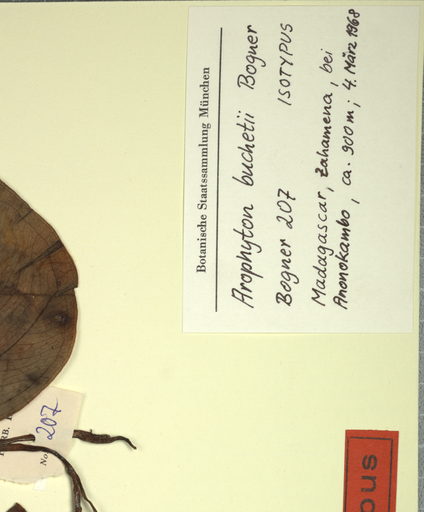 Botanische Staatssammlung München
Arophyton buchetii Bogner
Bogner 207 ISOTYPUS
Madagascar, Zahamena, bei
Anonokambo, ca. 900 m; 4. März 1968
No. 207
pus